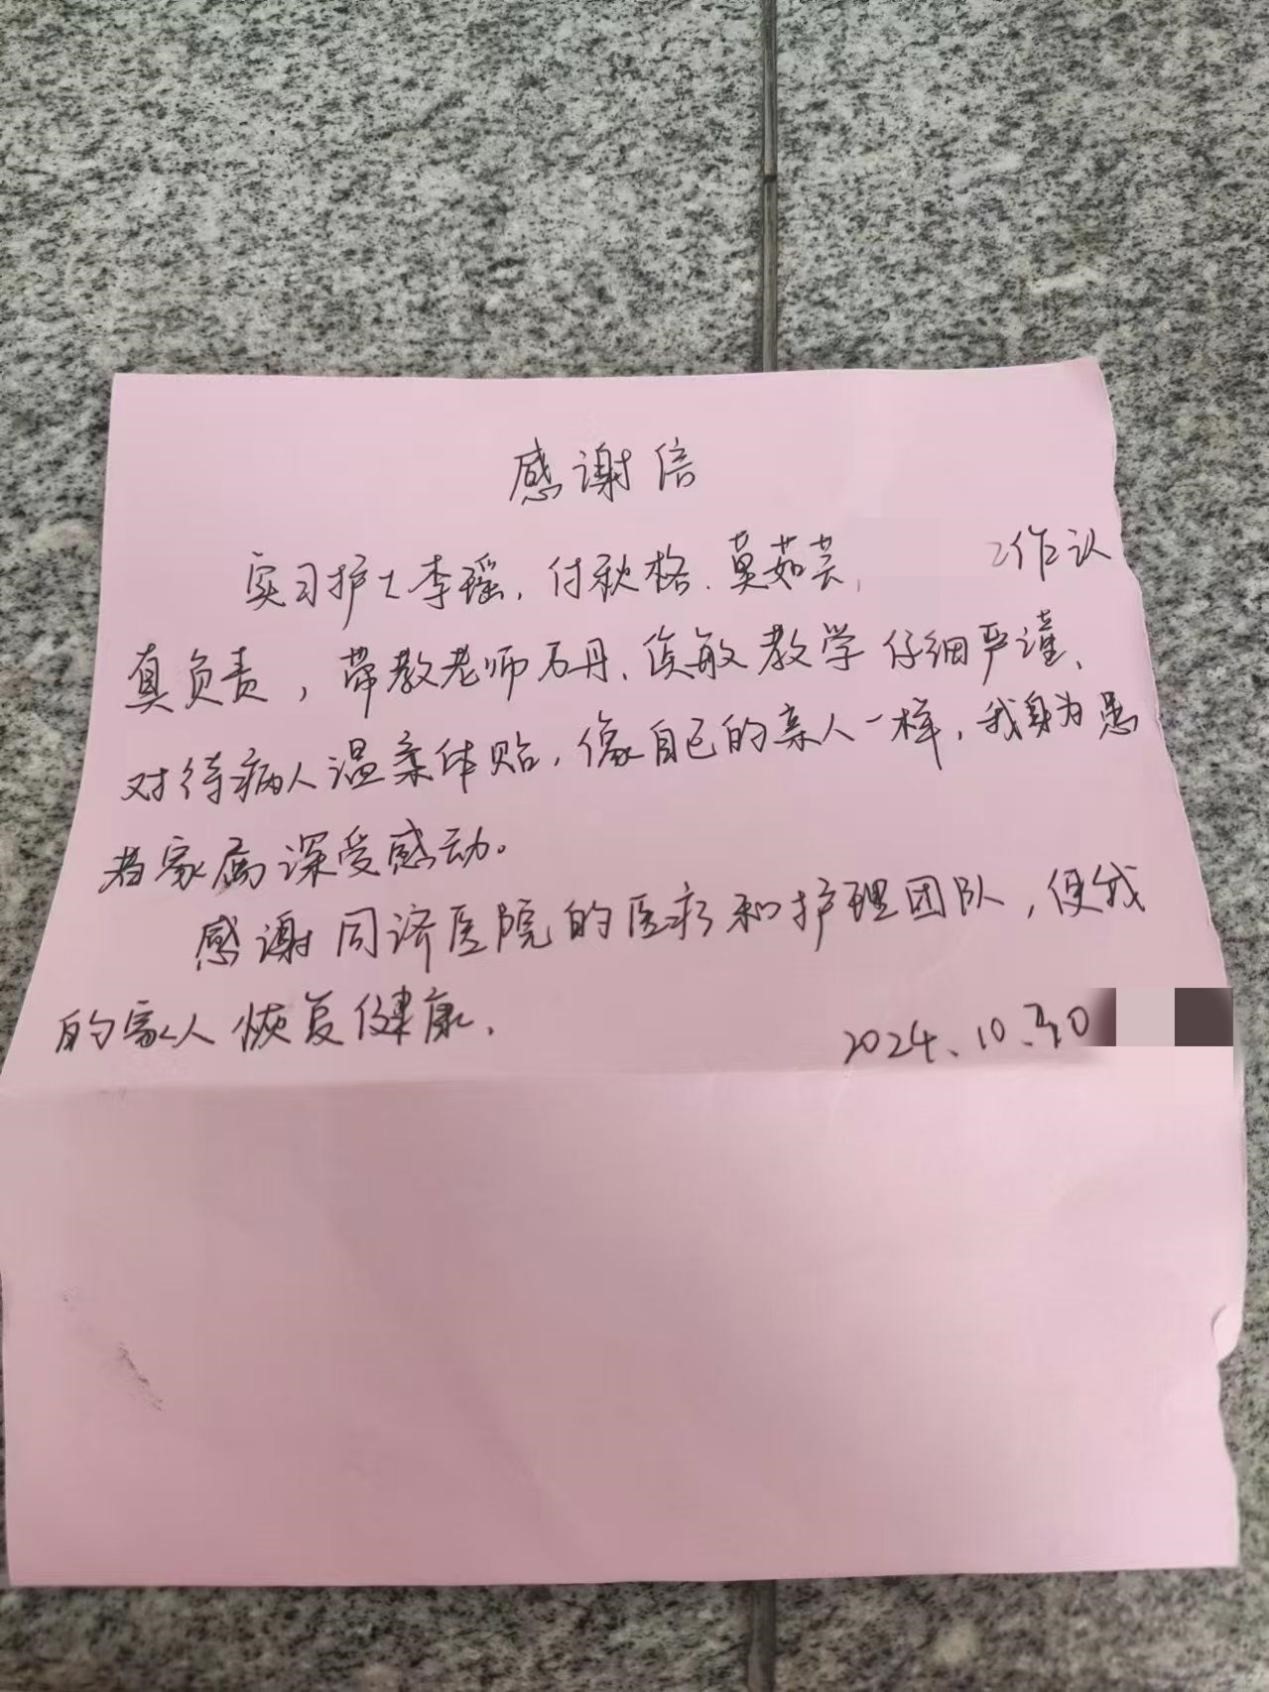 感谢信
实习护士李瑶，付秋格、莫茹芸， 工作认
真负责，带教老师石丹、侯敏教学仔细严谨、
对待病人温柔体贴，像自己的亲人一样，我身为患
者家属深受感动。
感谢同济医院的医疗和护理团队，使我
的家人恢复健康.
2024.10.30